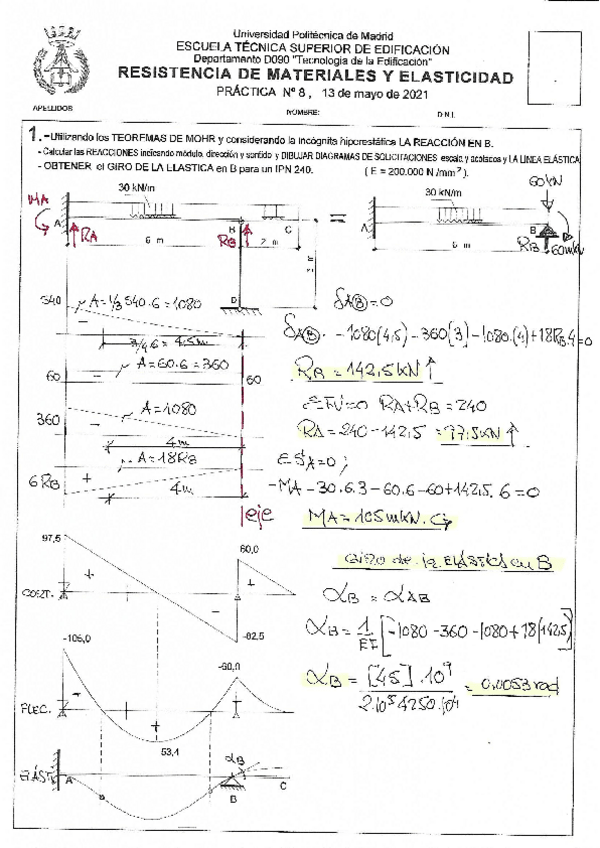 Universidad Politécnica de Madrid
ESCUELA TÉCNICA SUPERIOR DE EDIFICACIÓN
Departamento D090 "Tecnología de la Edificación"
RESISTENCIA DE MATERIALES Y ELASTICIDAD
PRÁCTICA Nº 8, 13 de mayo de 2021
APELLIDOS NOMBRE: D.N.I.
1.-Utilizando los TEOREMAS DE MOHR y considerando la incógnita hiperestática LA REACCIÓN EN B.
- Calcular las REACCIONES indicando módulo, dirección y sentido y DIBUJAR DIAGRAMAS DE SOLICITACIONES escala y acotacos y LA LINEA ELÁSTICA
- OBTENER el GIRO DE LA ELASTICA en B para un IPN 240. ( E = 200.000 N /mm² ).
MA 30 kN/m 30 kN/m 60 kN
A B C = A B
RA RB RB 60mkN
6 m 2 m 6 m
D
540 A = 1/3 540.6 = 1080
-
3/4.6 = 4,5m
δAB = 0
δAB = -1080(4,5) - 360(3) - 1080.(4) + 18RB.4 = 0
60 - A = 60.6 = 360 60
RB = 142,5 kN ↑
360 - A = 1080
4m
ΣFV=0 RA+RB = 240
RA = 240 - 142,5 = 97,5 kN ↑
A = 18RB
6RB + 4m
eje
ΣSA=0;
-MA - 30.6.3 - 60.6 - 60 + 142,5. 6 = 0
MA = 105 mkN.
97,5 60,0
CORT. + - +
-82,5
Giro de la ELÁSTICA en B
αB = αAB
αB = 1/EI [-1080 - 360 - 1080 + 18(142,5)]
-105,0 -60,0
FLEC. - + -
53,4
αB = [45] . 10⁹ / 2.10⁵ 4250.10⁴ = 0,0053 rad
αB
ELÁST. A B C